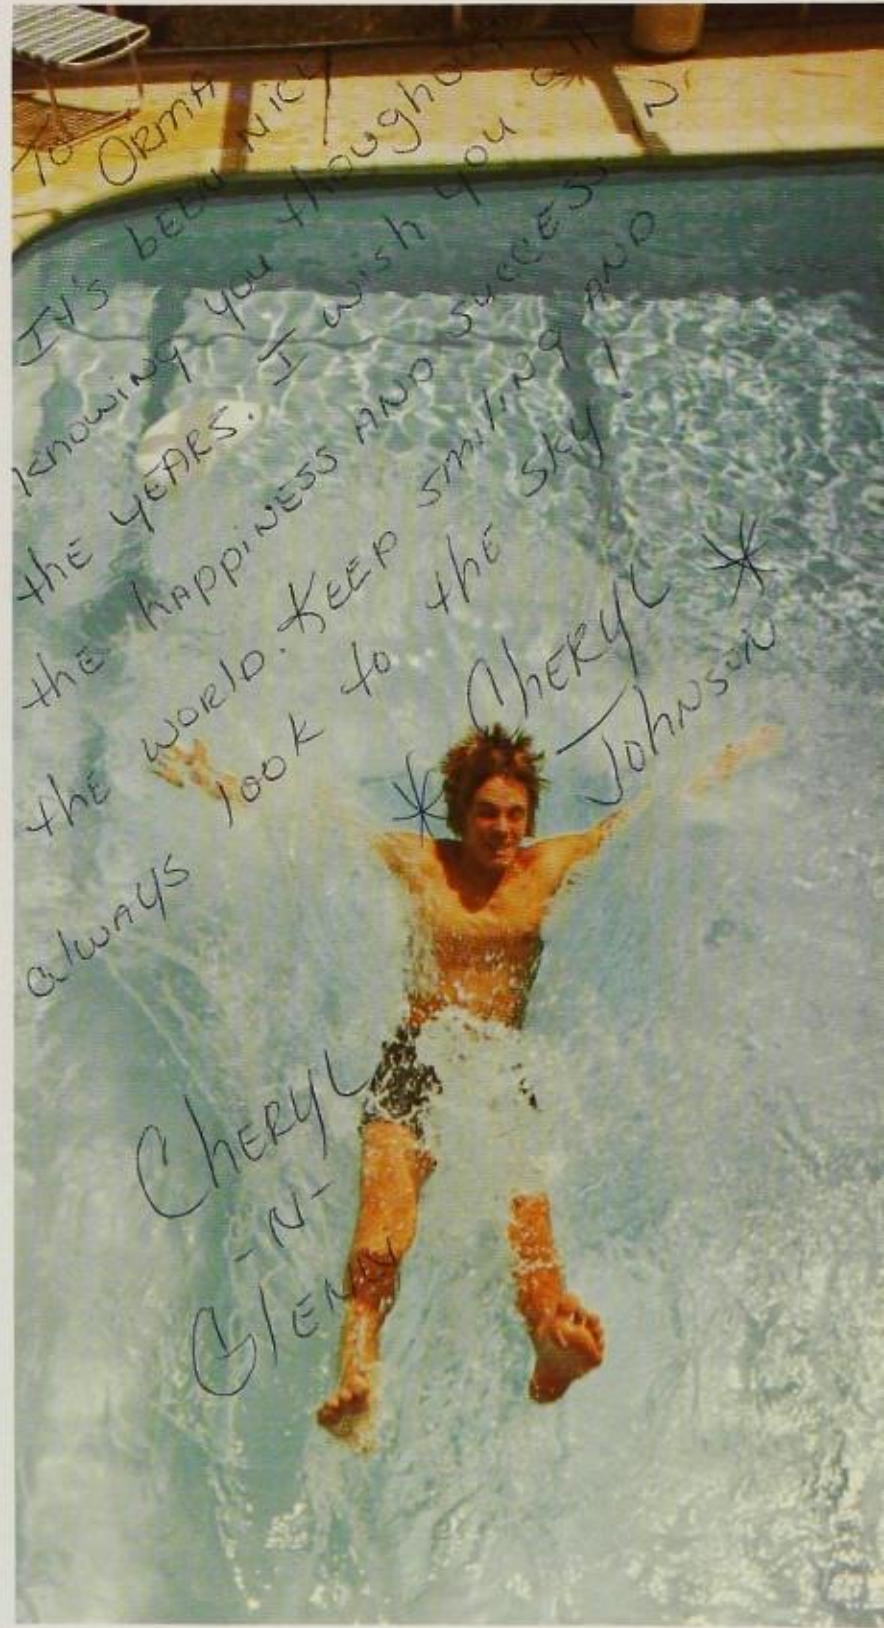 To ORMA
It's been Nicy
Knowing you thoughout
the YEARS. I wish you all
the happiness AND SUCCESS IN
the WORLD. KEEP SMILING AND
always look to the sky!
* CHERYL *
JOHNSON
CHERYL
-N-
GLENN